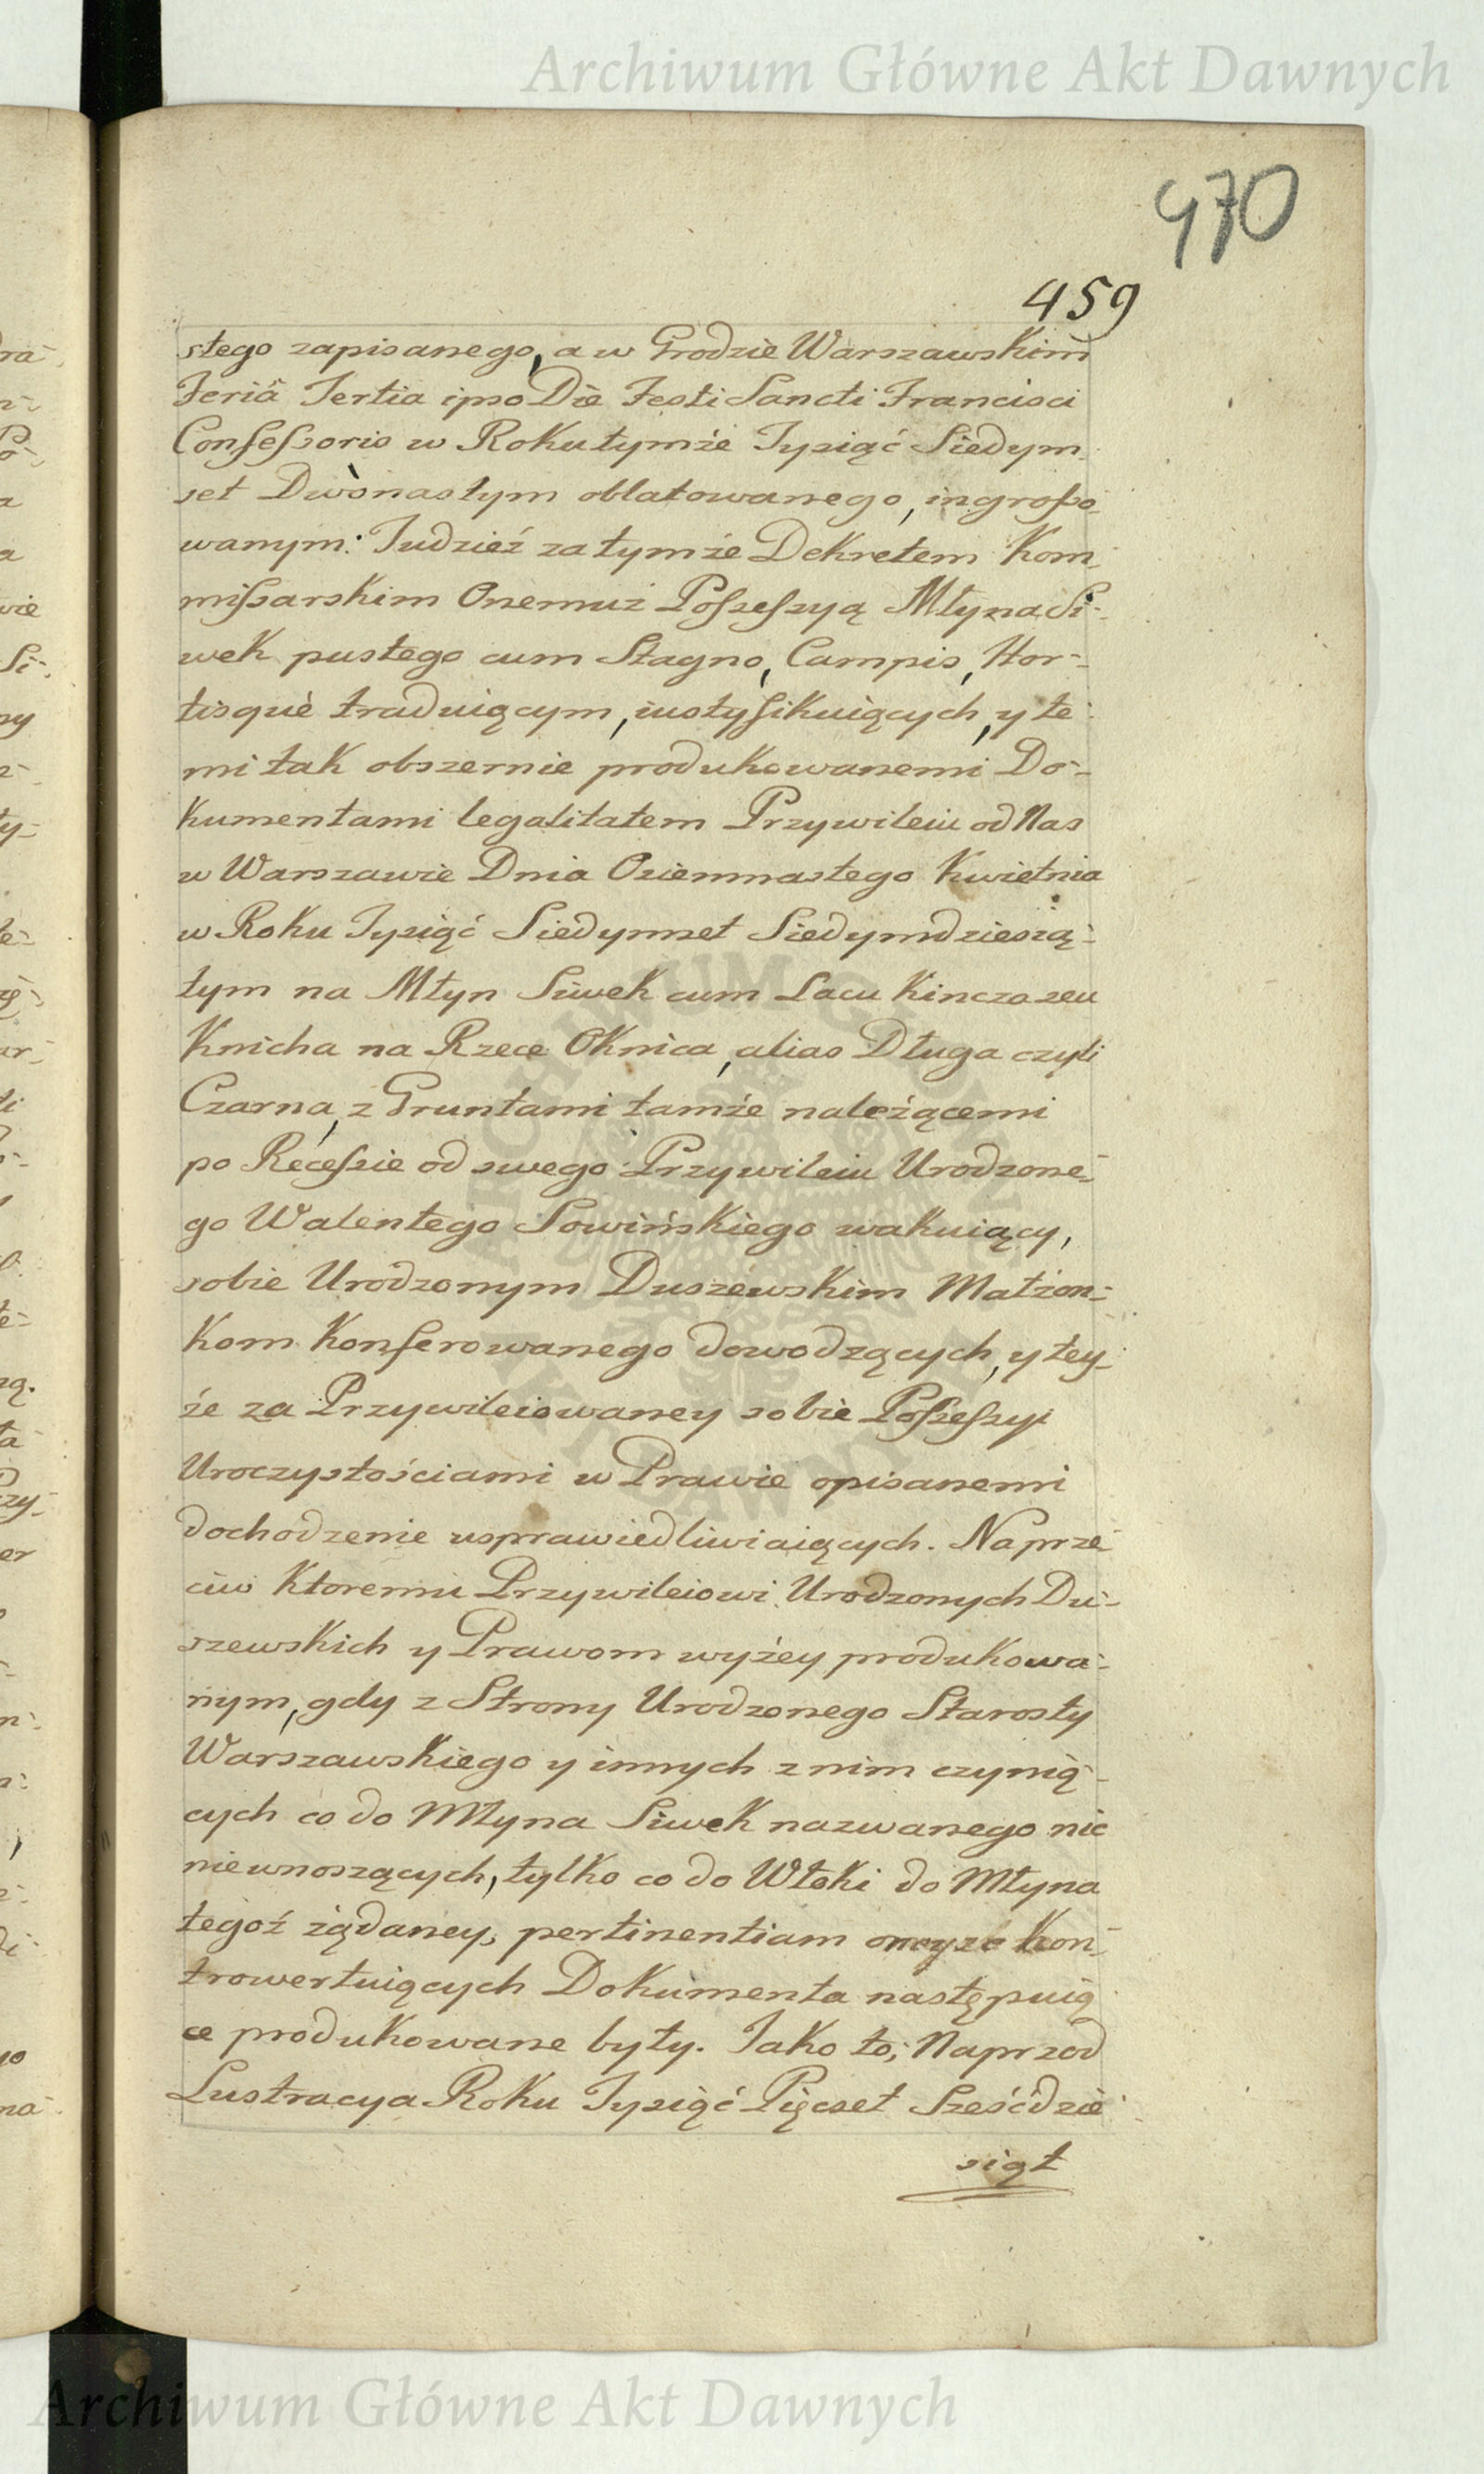 Archiwum Główne Akt Dawnych
470
459
stego zapisanego, a w Grodzie Warszawskim
Feriâ Tertia ipso Die Festi Sancti Francisci
Confeſsoris w Roku tymże Tysiąć Siedym-
set Dwónastym oblatowanego, ingroſso-
wanym: Tudzież za tymże Dekretem Kom-
miſsarskim Onemuż Poſseſsyą Młyna Si-
wek pustego cum Stagno, Campis, Hor-
tisque traduiącym, iustyfikuiących, y te-
mi tak obszernie produkowanemi Do-
kumentami legalitatem Przywileiu od Nas
w Warszawie Dnia Osiemnastego Kwietnia
w Roku Tysiąć Siedymset Siedymdziesią-
tym na Młyn Siwek cum Lacu Kincza seu
Knicha na Rzece Oknica, alias Długa czyli
Czarna, z Gruntami tamże należącemi
po Receſsie od swego Przywileiu Urodzone-
go Walentego Sowińskiego wakuiący,
sobie Urodzonym Duszewskim Małżon-
kom konferowanego dowodzących, y tey-
że za Przywileiowaney sobie Poſseſsyi
Uroczystościami w Prawie opisanemi
dochodzenie usprawiedliwiaiących. Naprze-
ciw ktoremu Przywileiowi Urodzonych Du-
szewskich y Prawom wyżey produkowa-
nym, gdy z Strony Urodzonego Starosty
Warszawskiego y innych z nim czynią-
cych co do Młyna Siwek nazwanego nic
niewnoszących, tylko co do Włoki do Młyna
tegoż żądaney, pertinentiam oneyże kon-
trowertuiących Dokumenta następuią-
ce produkowane były. Jako to; Naprzod
Lustracya Roku Tysiąć Pięcset Sześćdzie-
siąt
Archiwum Główne Akt Dawnych